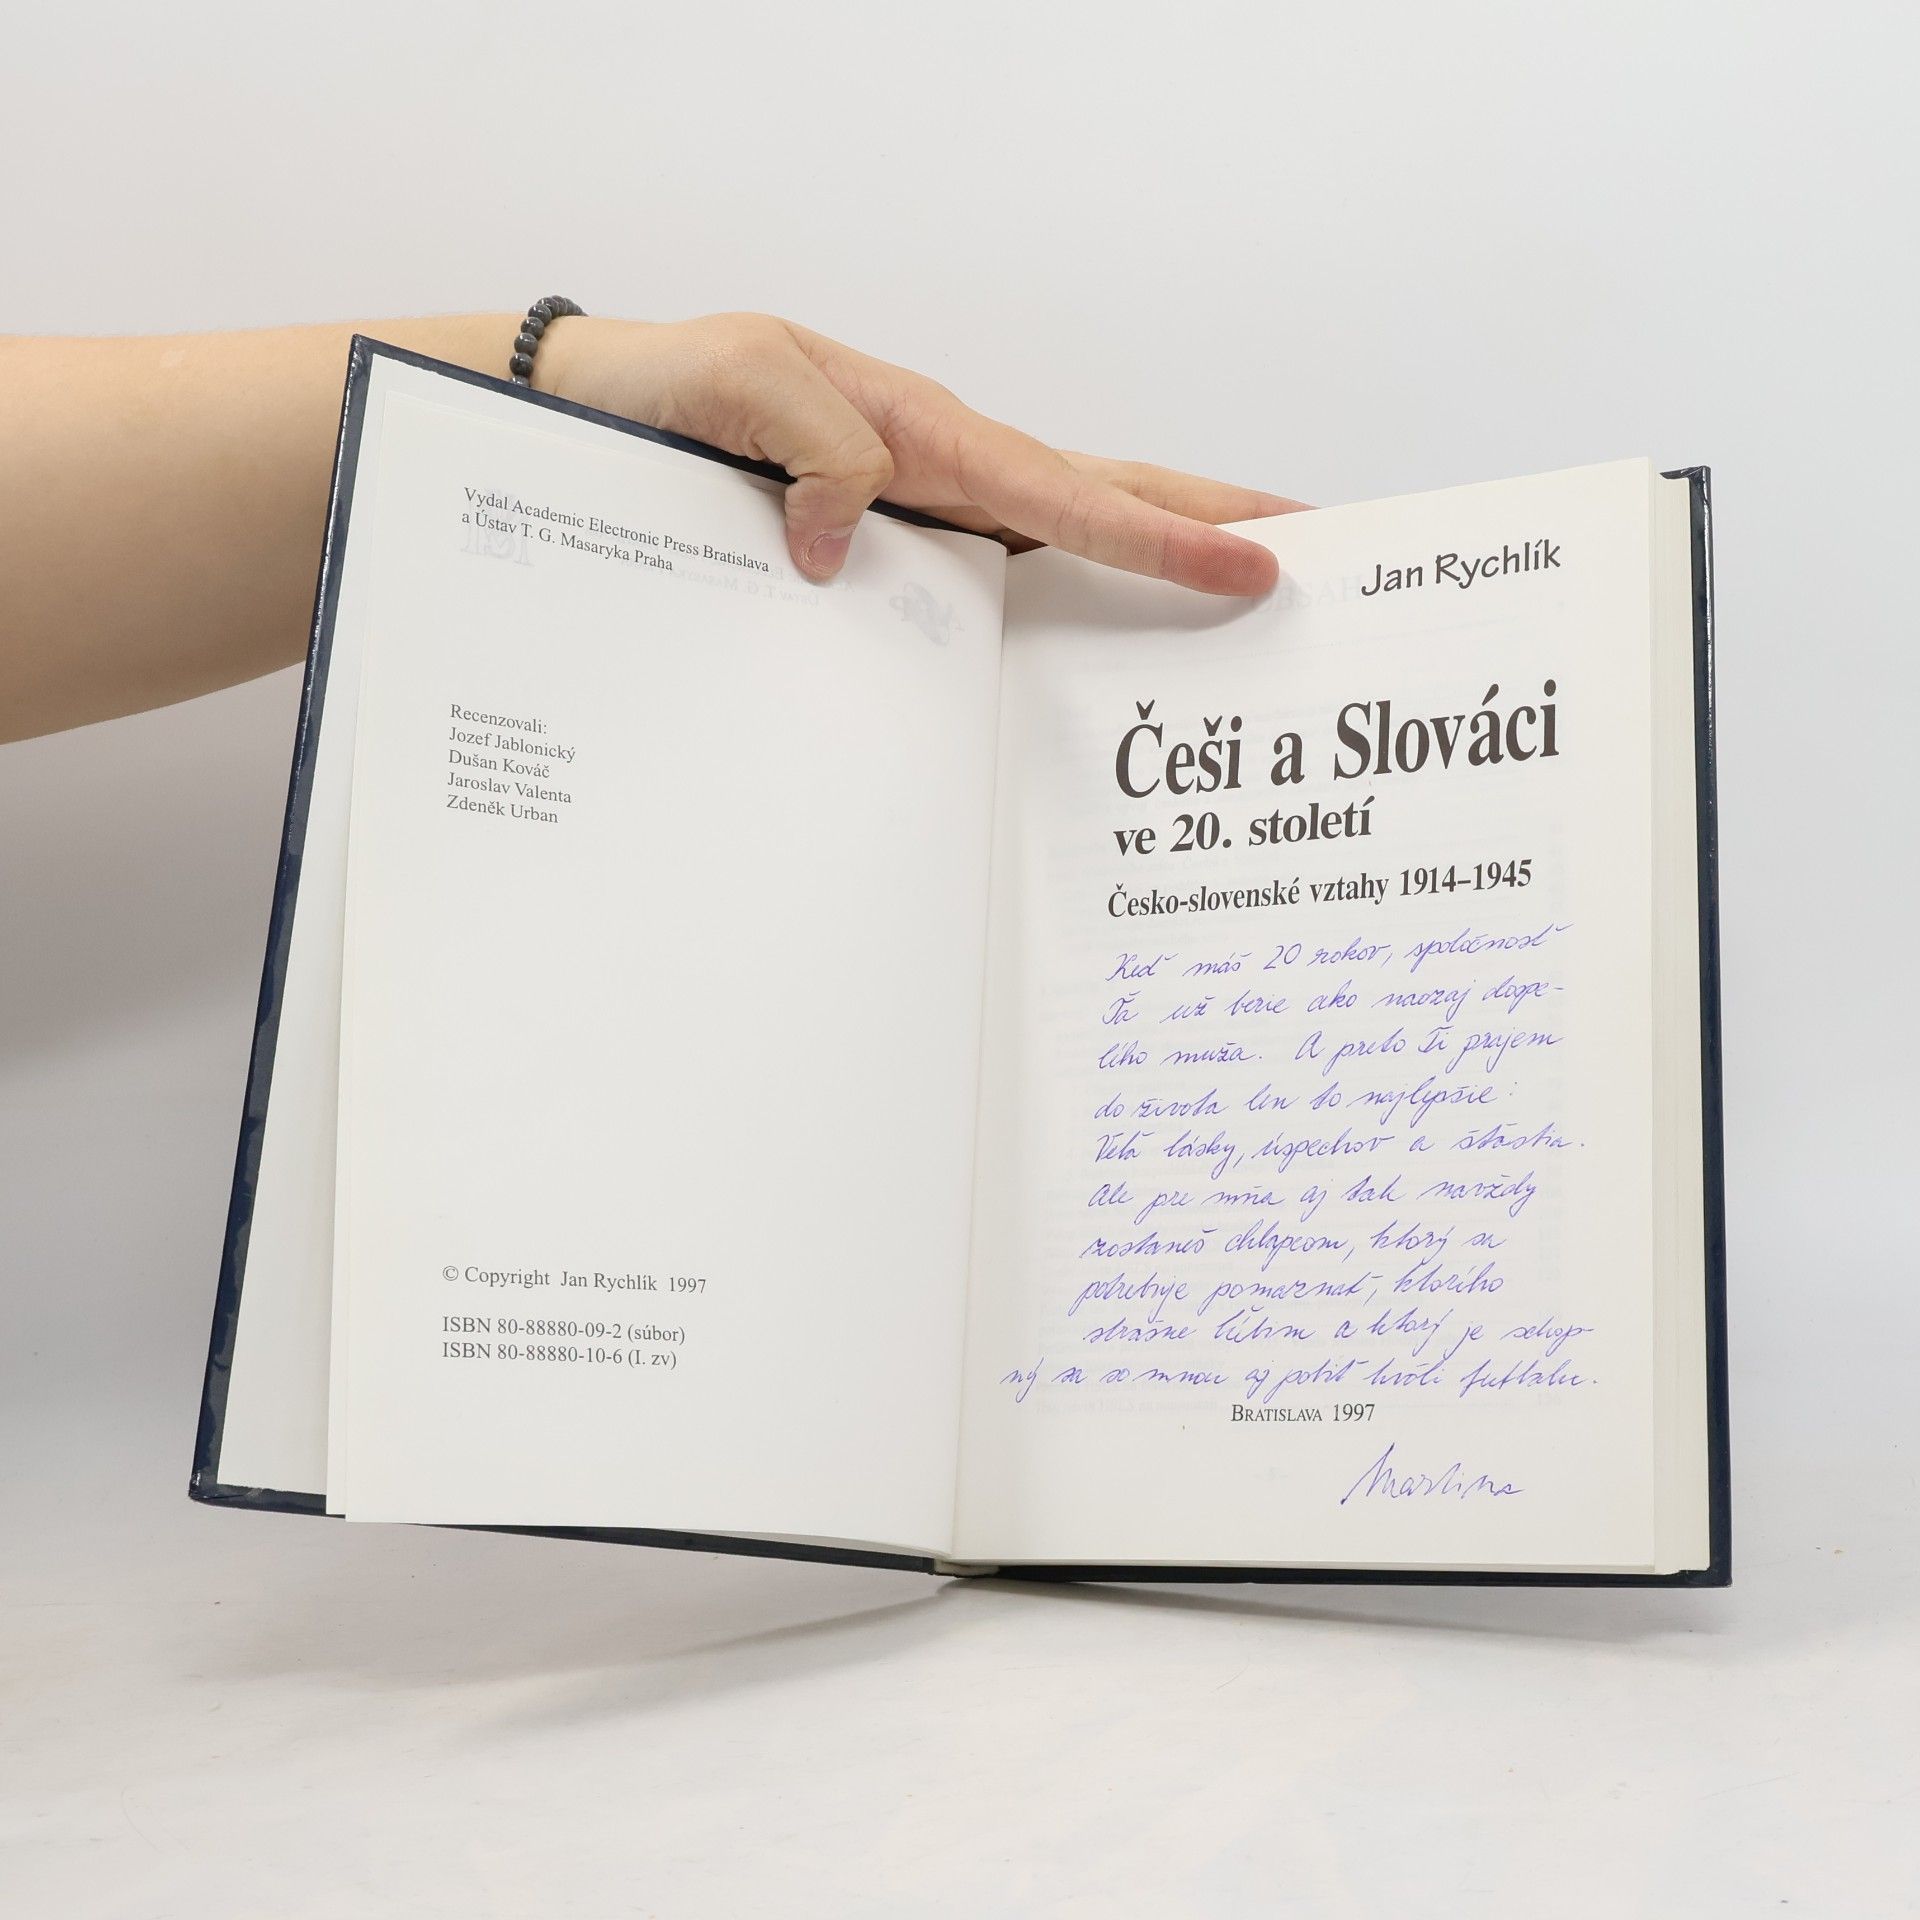 Vydal Academic Electronic Press Bratislava
a Ústav T. G. Masaryka Praha
Recenzovali:
Jozef Jablonický
Dušan Kováč
Jaroslav Valenta
Zdeněk Urban
© Copyright Jan Rychlík 1997
ISBN 80-88880-09-2 (súbor)
ISBN 80-88880-10-6 (I. zv)
Jan Rychlík
Češi a Slováci
ve 20. století
Česko-slovenské vztahy 1914–1945
Keď máš 20 rokov, spoločnosť
Ťa už berie ako naozaj dospe-
lého muža. A preto Ti prajem
do života len to najlepšie:
Veľa lásky, úspechov a šťastia.
Ale pre mňa aj tak navždy
zostaneš chlapcom, ktorý sa
potrebuje pomaznať, ktorého
strašne ľúbim a ktorý je schop-
ný sa so mnou aj pobiť kvôli futbalu.
BRATISLAVA 1997
Martina